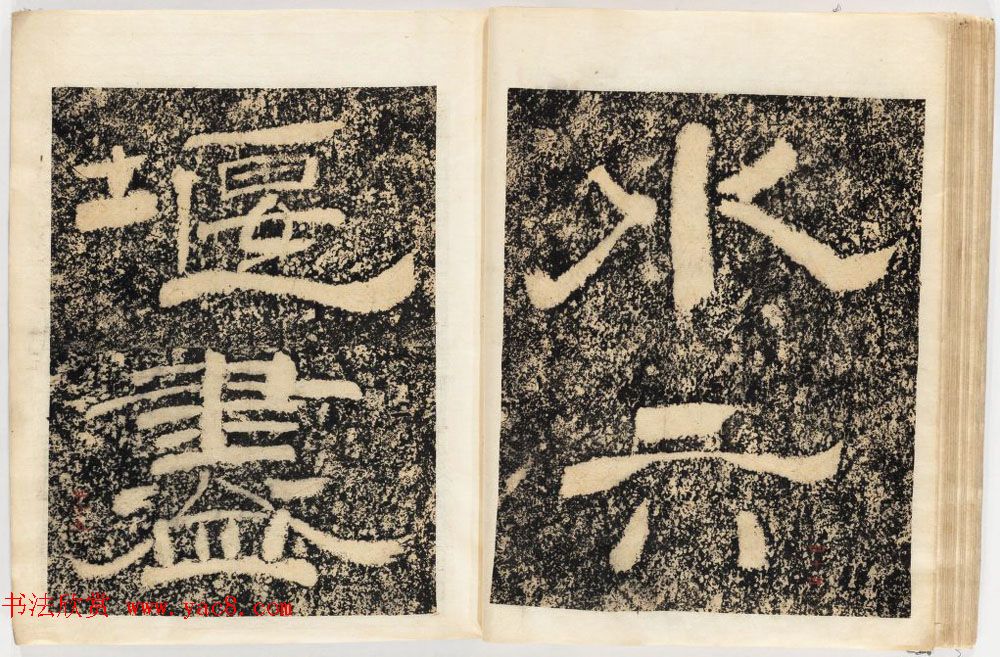 水六
堰盡
书法欣赏 www.yac8.com